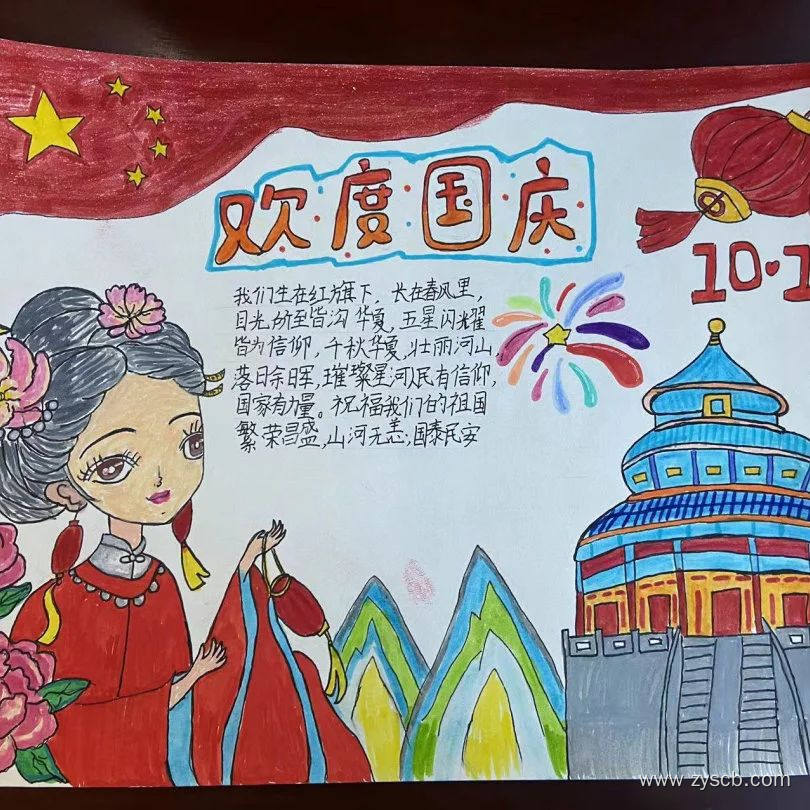 欢度国庆
10·1
我们生在红旗下，长在春风里，
目光所至皆为华夏，五星闪耀
皆为信仰，千秋华夏，壮丽河山，
落日余晖，璀璨星河，民有信仰，
国家有力量。祝福我们的祖国
繁荣昌盛，山河无恙，国泰民安
www.zyscb.com